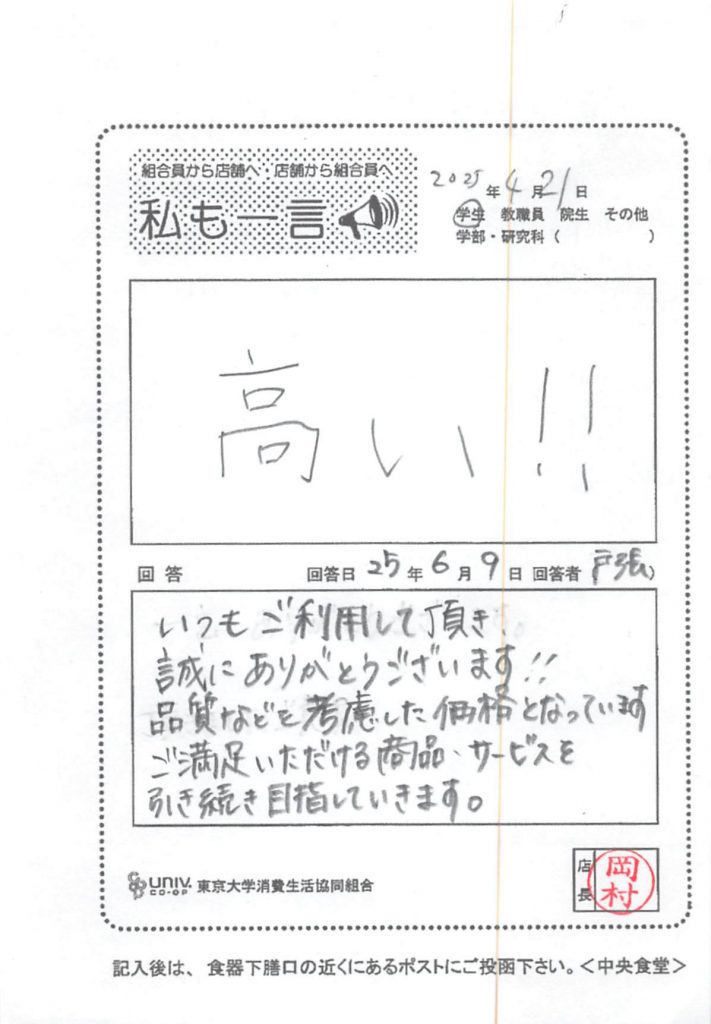 組合員から店舗へ・店舗から組合員へ
私も一言
2025年4月21日
学生 教職員 院生 その他
学部・研究科（ ）
高い!!
回答 回答日 25年6月9日 回答者 戸張）
いつもご利用して頂き、
誠にありがとうございます!!
品質などを考慮した価格となっています
ご満足いただける商品・サービスを
引き続き目指していきます。
UNIV. CO-OP 東京大学消費生活協同組合
店長 岡村
記入後は、食器下膳口の近くにあるポストにご投函下さい。＜中央食堂＞